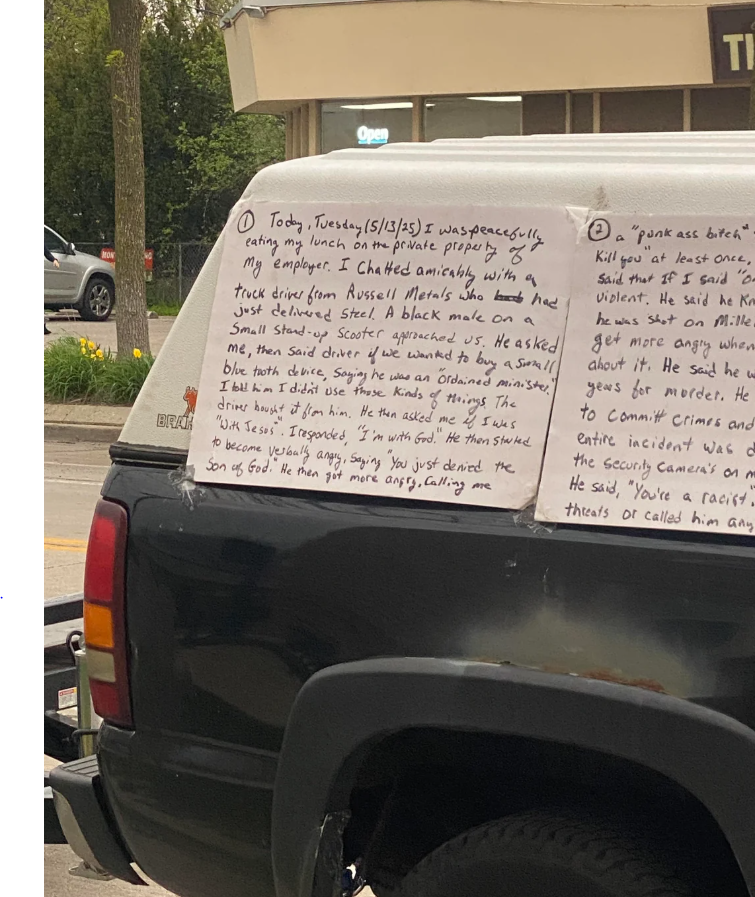 TI
Open
① Today, Tuesday (5/13/25) I was peacefully
eating my lunch on the private property of
my employer. I chatted amicably with a
truck driver from Russell Metals who had
just delivered steel. A black male on a
small stand-up scooter approached us. He asked
me, then said driver if we wanted to buy a small
blue tooth device, saying he was an "ordained minister."
I told him I didn't use those kinds of things. The
driver bought it from him. He then asked me if I was
"with Jesus". I responded, "I'm with God." He then started
to become verbally angry, saying "You just denied the
Son of God." He then got more angry, calling me
② a "punk ass bitch"
Kill you" at least once,
said that If I said "
violent. He said he
he was shot on Mill
get more angry when
about it. He said he
years for murder. He
to committ crimes and
entire incident was
the security camera's on
He said, "You're a racist,"
threats or called him